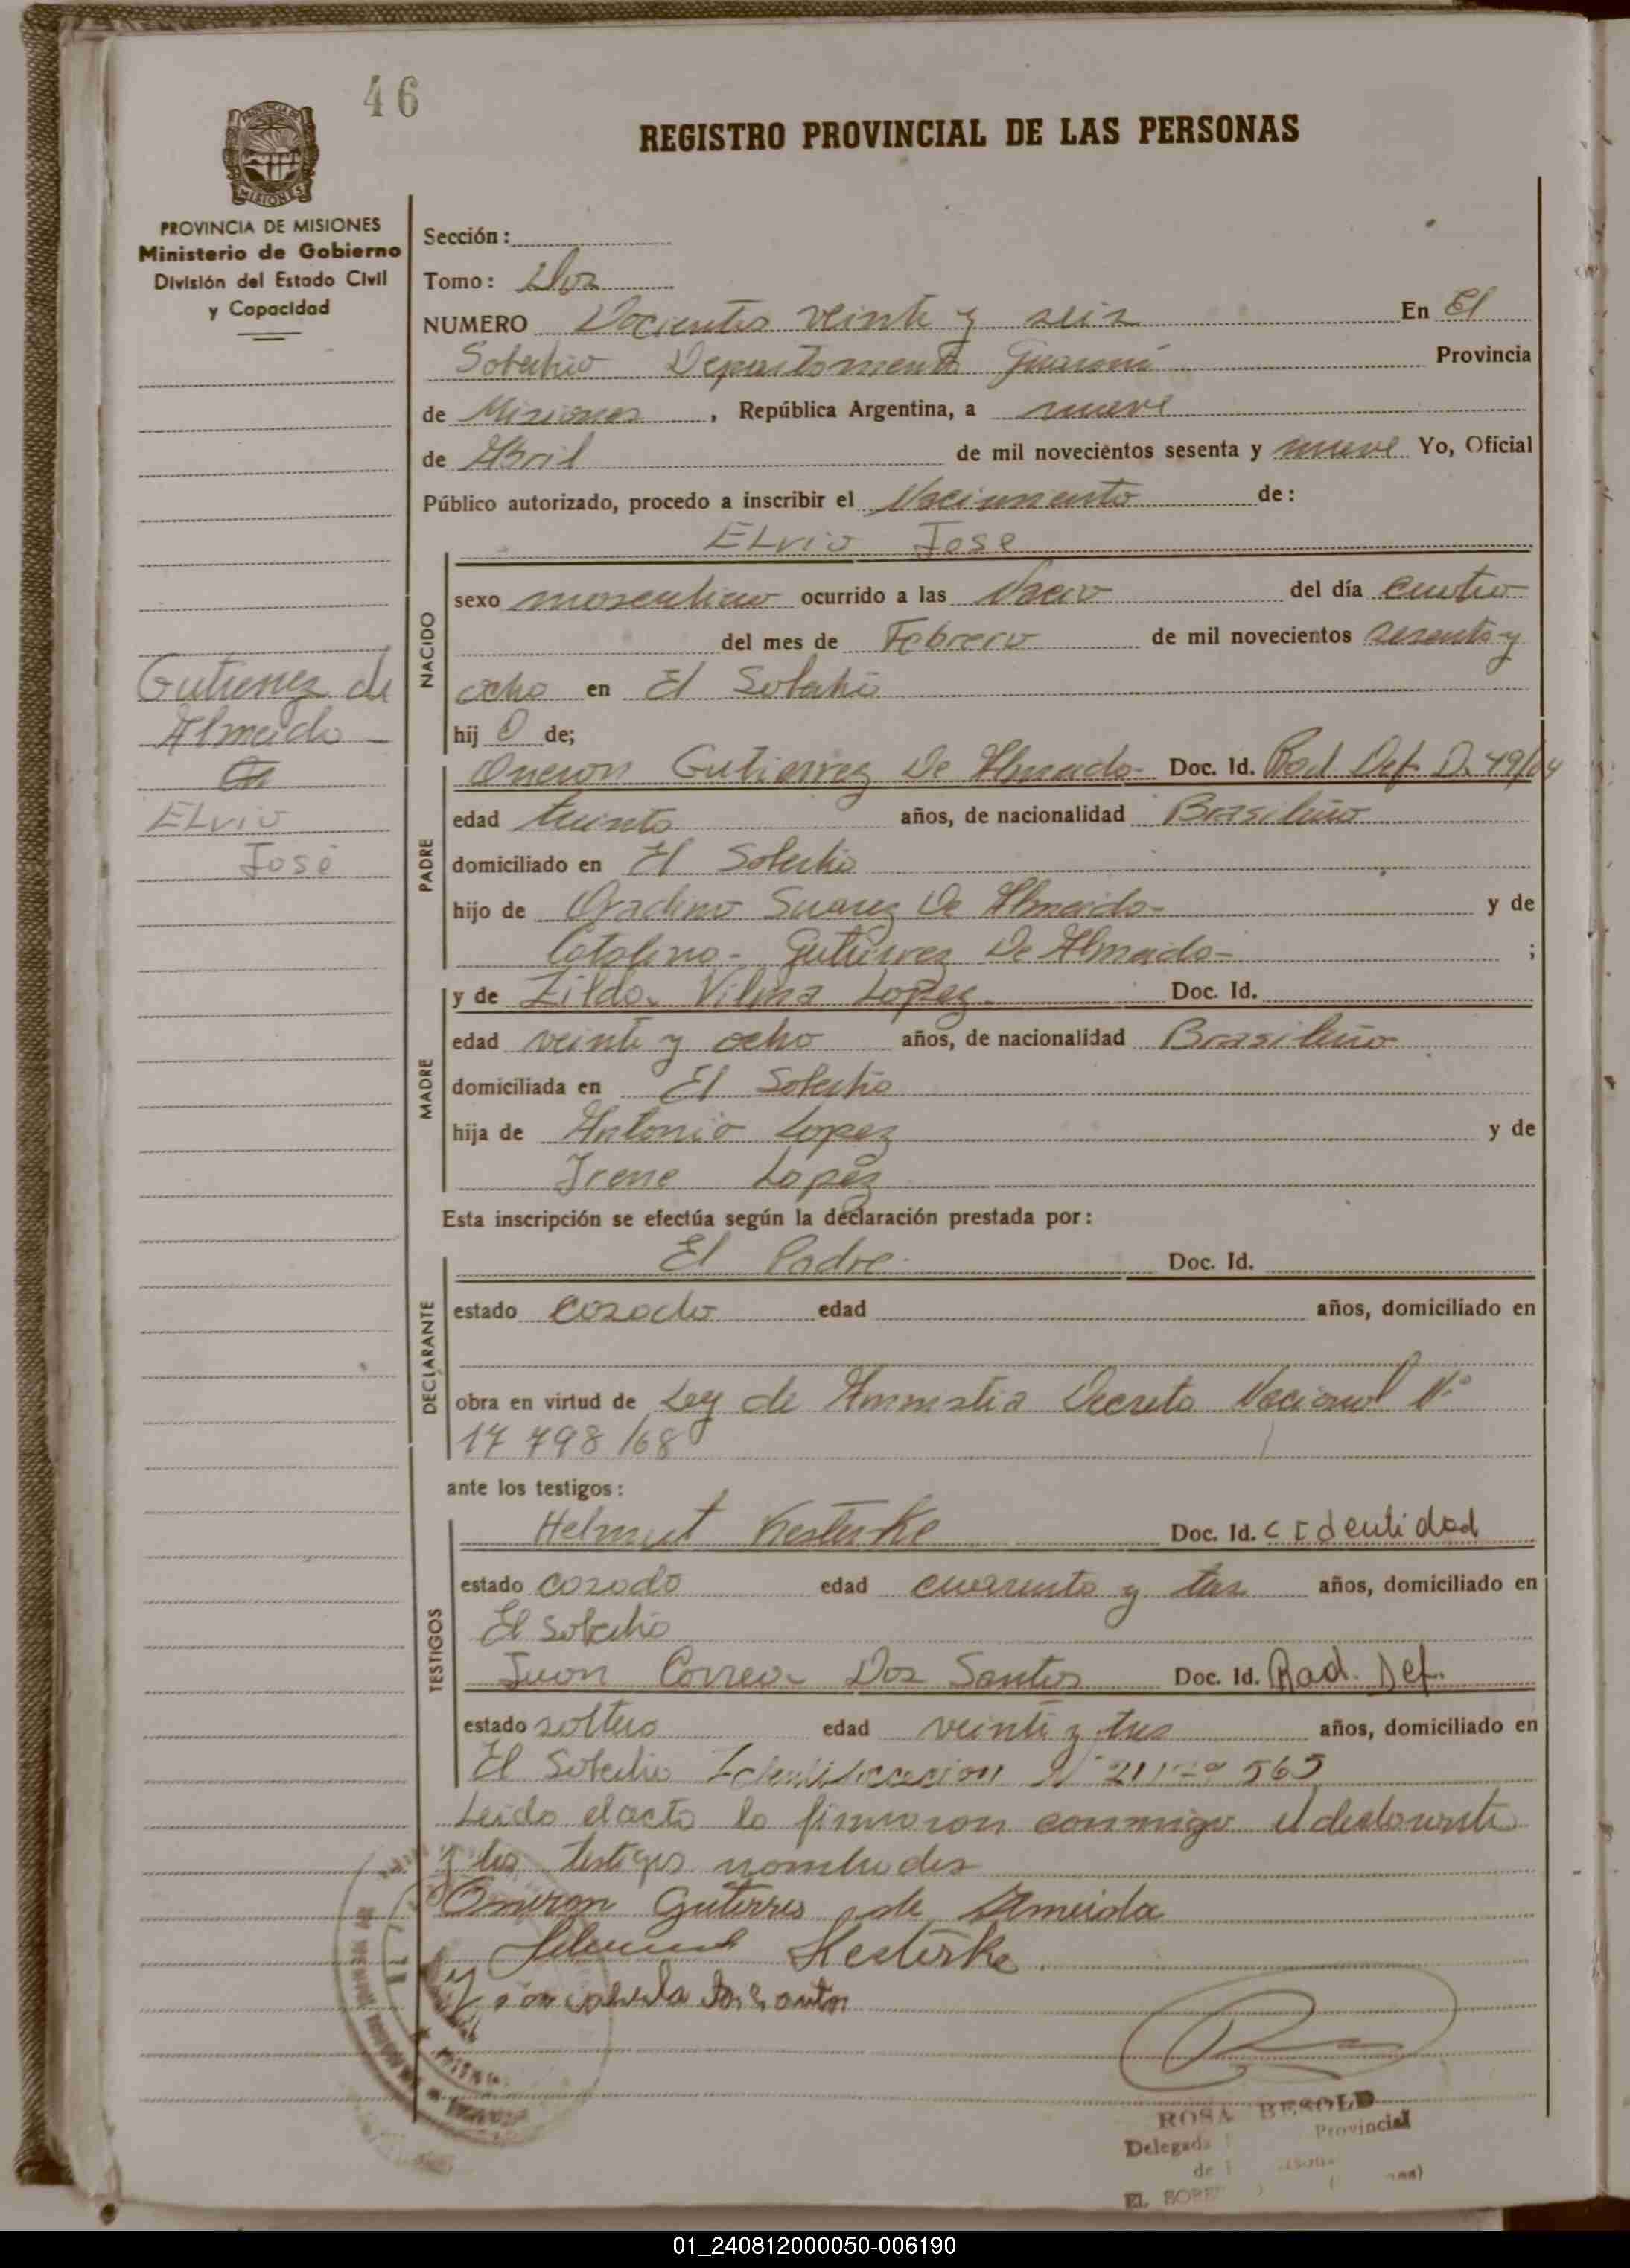 46
REGISTRO PROVINCIAL DE LAS PERSONAS
MISIONES
PROVINCIA DE MISIONES
Ministerio de Gobierno
División del Estado Civil
y Capacidad
Sección:
Tomo: Dos
NUMERO Docientos veinte y seis En El
Soberbio Departamento Guarani Provincia
de Misiones, República Argentina, a nueve
de Abril de mil novecientos sesenta y nueve Yo, Oficial
Público autorizado, procedo a inscribir el Nacimiento de:
ELvio Jose
NACIDO
sexo masculino ocurrido a las del día cuatro
del mes de Febrero de mil novecientos sesenta y
ocho en El Soberbio
hijo de;
Gutierrez de
Almeida
ELvio
José
PADRE
Gutierrez De Almeida Doc. Id. Rad. Def. D. 49/64
edad treinta años, de nacionalidad Brasileño
domiciliado en El Soberbio
hijo de Suarez De Almeida y de
Catalina Gutierrez De Almeida ;
MADRE
y de Zilda Vilma Lopez Doc. Id.
edad veinte y ocho años, de nacionalidad Brasileño
domiciliada en El Soberbio
hija de Antonio Lopez y de
Irene Lopez
Esta inscripción se efectúa según la declaración prestada por:
DECLARANTE
El Padre Doc. Id.
estado casado edad años, domiciliado en
obra en virtud de Ley de Amnistia Decreto Nacional Nº
17 798/68
ante los testigos:
TESTIGOS
Helmut Kesterke Doc. Id. C Identidad
estado casado edad cuarenta y tres años, domiciliado en
El Soberbio
Juan Correa Dos Santos Doc. Id. Rad. Def.
estado soltero edad veinte y tres años, domiciliado en
El Soberbio Identificacion Nº 565
Leido el acta la firmaron conmigo el declarante
y los testigos nombrados
Omeron Guterres de Almeida
Helmut Kesterke
dos Santos
ROSA BESOLD
Delegada Provincial
de
EL SOBER
01_240812000050-006190